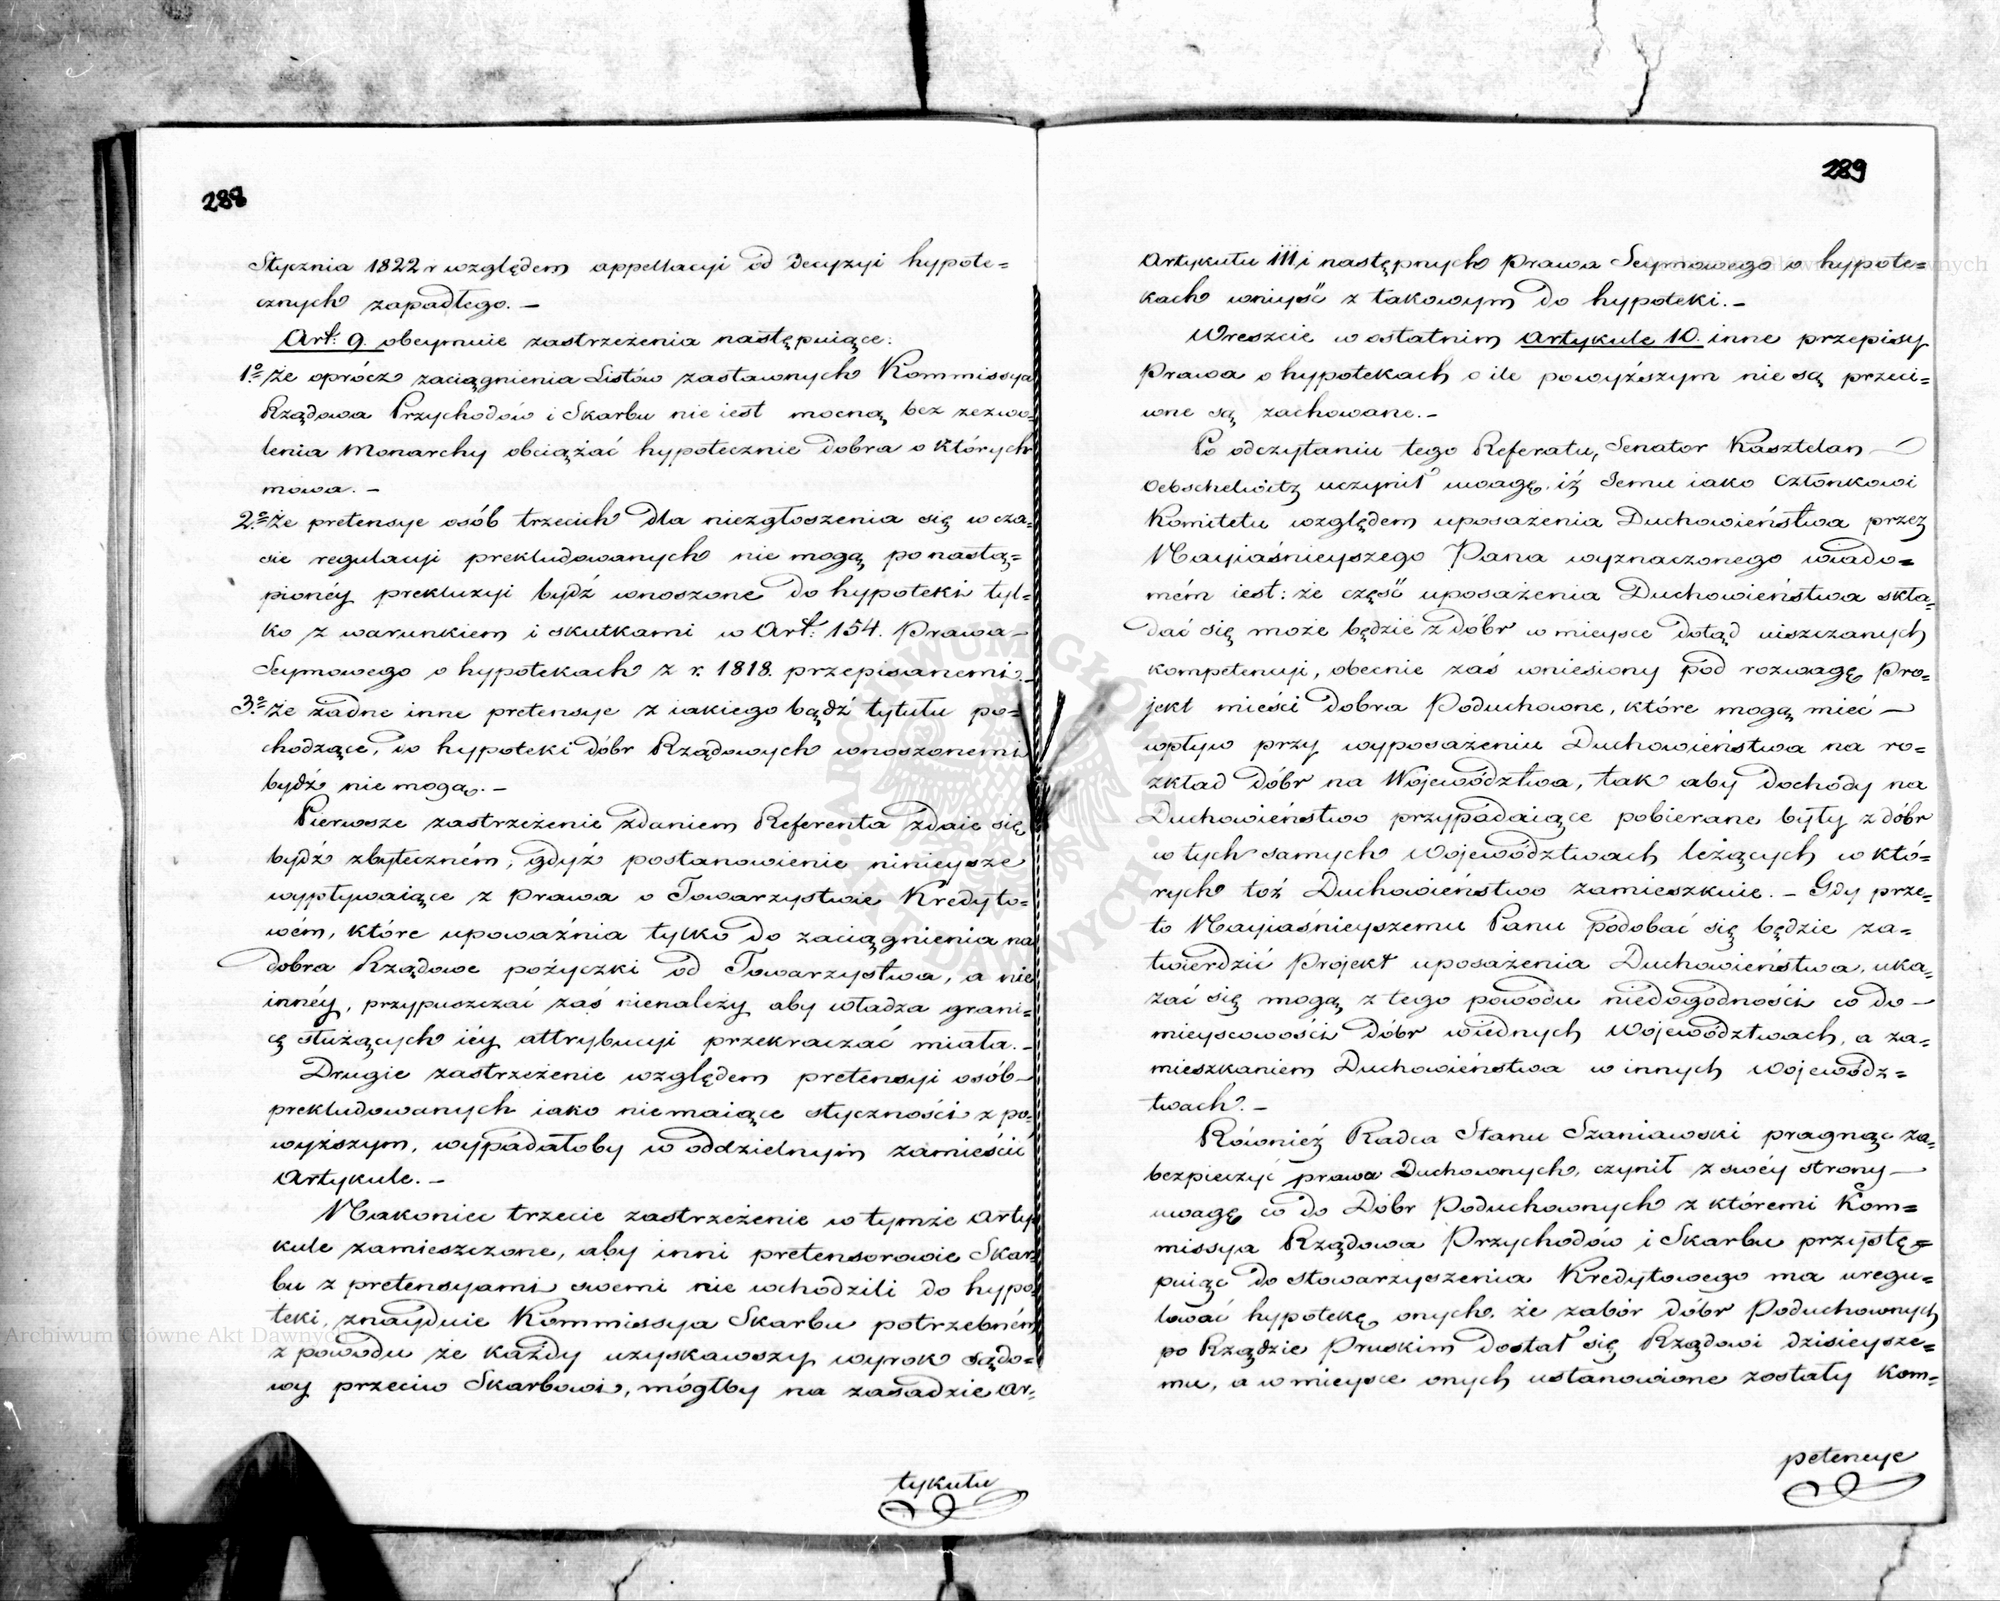 288
Stycznia 1822 r względem appellacyi od Decyzyi hypote=
cznych zapadłego. —
Art: 9. obeymuie zastrzeżenia następuiące:
1o że oprócz zaciągnienia Listów zastawnych Kommissya
Rządowa Przychodów i Skarbu nie iest mocną bez zezwo=
lenia Monarchy obciążać hypotecznie dobra o których
mowa. —
2o że pretensye osób trzecich dla niezgłoszenia się w cza=
sie regulacyi prekludowanych nie mogą po nastą=
pionéy prekluzyi bydź wnoszone do hypoteki tyl=
ko z warunkiem i skutkami w Art: 154. Prawa —
Seymowego o hypotekach z r. 1818. przepisanemi. —
3o że żadne inne pretensye z iakiego bądź tytułu po=
chodzące, do hypoteki dóbr Rządowych wnoszonemi
bydź nie mogą. —
Pierwsze zastrzeżenie zdaniem Referenta zdaie się
bydź zbyteczném, gdyż postanowienie ninieysze
wypływaiące z Prawa o Towarzystwie Kredyto=
wém, które upoważnia tylko do zaciągnienia na
dobra Rządowe pożyczki od Towarzystwa, a nie
innéy, przypuszczać zaś nienależy aby władza grani=
cę służących iéy attrybucyi przekraczać miała. —
Drugie zastrzeżenie względem pretensyi osób —
prekludowanych iako nie maiące styczności z po=
wyższym, wypadałoby w oddzielnym zamieścić
Artykule. —
Nakoniec trzecie zastrzeżenie w tymże Arty
kule zamieszczone, aby inni pretensorowie Skar
bu z pretensyami swemi nie wchodzili do hypo
teki, znayduie Kommissya Skarbu potrzebném
z powodu że każdy uzyskawszy wyrok sądo=
wy przeciw Skarbowi, mógłby na zasadzie Ar=
tykułu
289
Artykułu 111 i następnych Prawa Seymowego o hypote=
kach wniyść z takowym do hypoteki. —
Wreszcie w ostatnim Artykule 10. inne przepisy
Prawa o hypotekach o ile powyższym nie są przeci=
wne są zachowane. —
Po odczytaniu tego Referatu, Senator Kasztelan —
Oebschelwitz uczynił uwagę, iż Jemu iako Członkowi
Komitetu względem uposażenia Duchowieństwa przez
Nayiaśnieyszego Pana wyznaczonego wiado=
mém iest: że część uposażenia Duchowieństwa skła=
dać się może będzie z dóbr w mieysce dotąd uiszczanych
kompetencyi, obecnie zaś wniesiony pod rozwagę Pro=
jekt mieści dobra Poduchowne, które mogą mieć —
wpływ przy wyposażeniu Duchowieństwa na ro=
zkład dóbr na Województwa, tak aby dochody na
Duchowieństwo przypadaiące pobierane były z dóbr
w tych samych Województwach leżących w któ=
rych toż Duchowieństwo zamieszkuie. — Gdy prze=
to Nayiaśnieyszemu Panu podobać się będzie za=
twierdzić Projekt uposażenia Duchowieństwa, uka=
zać się mogą z tego powodu niedogodności co do —
mieyscowości dóbr wiednych Województwach, a za=
mieszkaniem Duchowieństwa w innych Wojewódz=
twach. —
Również Radca Stanu Szaniawski pragnąc za=
bezpieczyć prawa Duchownych, czynił z swéy strony —
uwagę co do Dóbr Poduchownych z któremi Kom=
missya Rządowa Przychodów i Skarbu przystę=
puiąc do stowarzyszenia Kredytowego ma uregu=
lować hypotekę onych, że zabór dóbr Poduchownych
po Rządzie Pruskim dostał się Rządowi dzisieysze=
mu, a w mieysce onych ustanowione zostały Kom=
petencye
Archiwum Główne Akt Dawnych